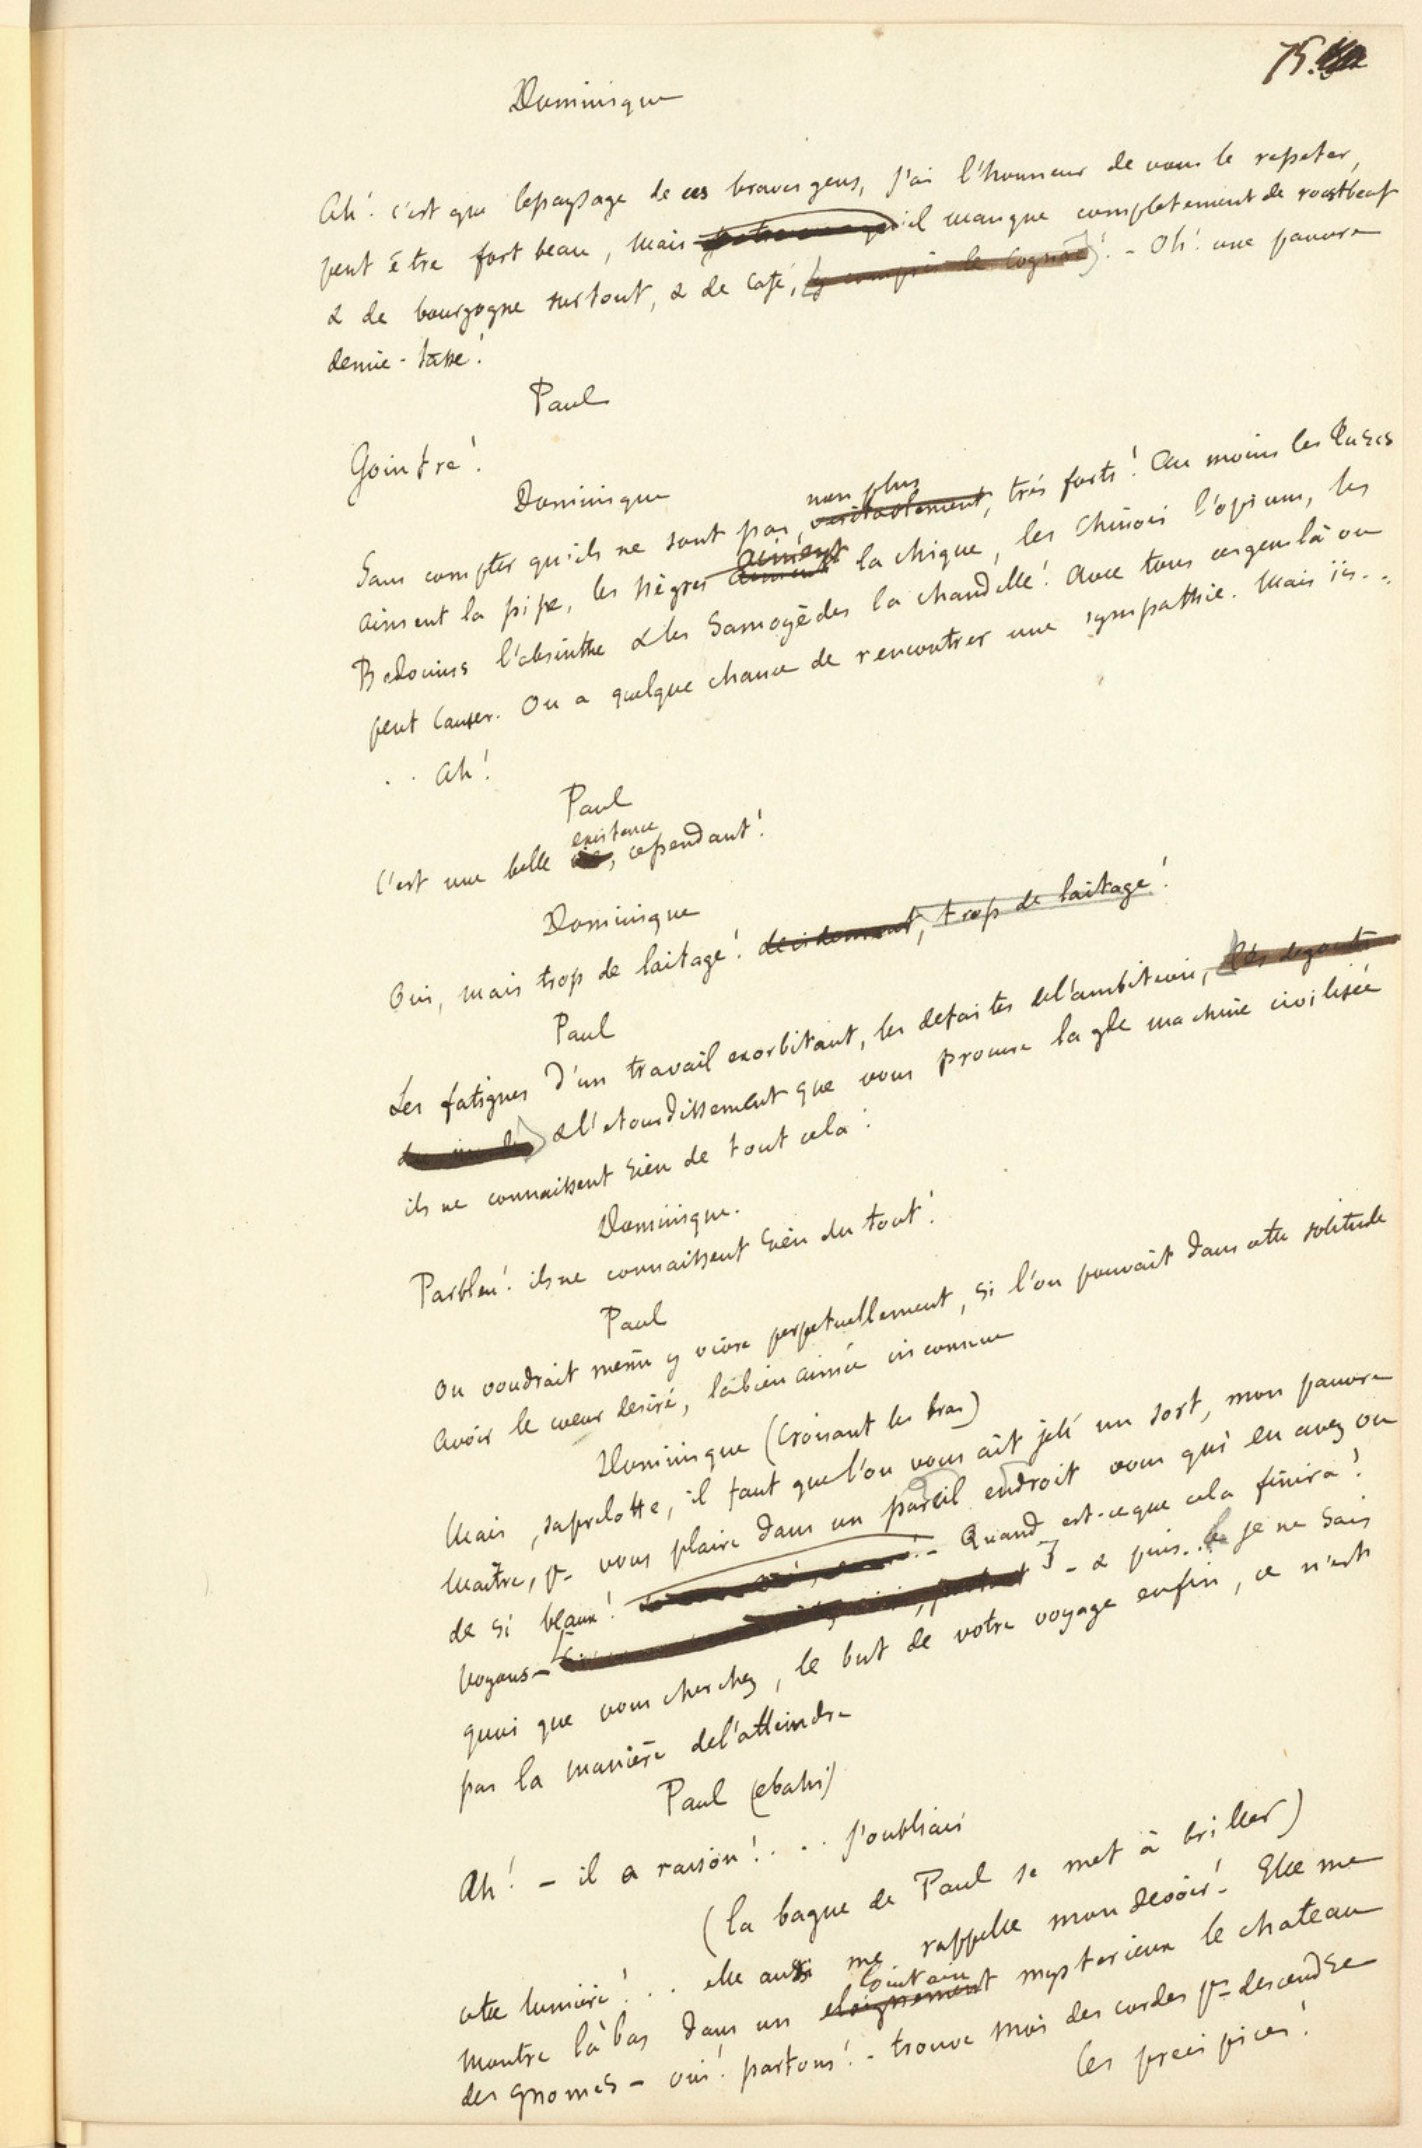 75.
Dominique
Ah! c'est que le paysage de ces braves gens, j'ai l'honneur de vous le repeter,
peut être fort beau, mais il manque completement de roastbeaf
& de bourgogne surtout, & de café, (y compris le Cognac)! - Oh! une pauvre
demie-tasse!
Paul
Goinfre!
Dominique
non plus
Sans compter qu'ils ne sont pas, veritablement, très forts! Au moins les Russes
aiment
aiment la pipe, les Nègres aiment la chique, les Chinois l'opium, les
Bedouins l'absinthe & les Samoyèdes la chandelle! Avec tous ces gens là on
peut causer. On a quelque chance de rencontrer une sympathie. Mais ici..
.. Ah!
Paul
existence
C'est une belle vie, cependant!
Dominique
Oui, mais trop de laitage! decidement, trop de laitage!
Paul
Les fatigues d'un travail exorbitant, les defaites de l'ambition, les degouts
& l'etourdissement que vous procure la gde machine civilisée
ils ne connaissent rien de tout cela!
Dominique.
Parbleu! ils ne connaissent rien du tout!
Paul
On voudrait meme y vivre perpetuellement, si l'on pouvait dans cette solitude
avoir le cœur desiré, la bien aimée inconnue
Dominique (croisant les bras)
Mais, saprelotte, il faut que l'on vous ait jeté un sort, mon pauvre
Maître, pr vous plaire dans un pareil endroit vous qui en avez vu
de si beaux! - Quand est-ce que cela finira!
voyons - - & puis.. je ne sais
quoi que vous cherchez, le but de votre voyage enfin, ce n'est
pas la manière de l'atteindre
Paul (ebahi)
Ah! - il a raison! . . . j'oubliais
(la bague de Paul se met à briller)
cette lumière! . . elle aussi me rappelle mon devoir! Elle me
lointain
montre là bas dans un eloignement mysterieux le chateau
des gnomes - oui! partons! - trouve moi des cordes pr descendre
les precipices!